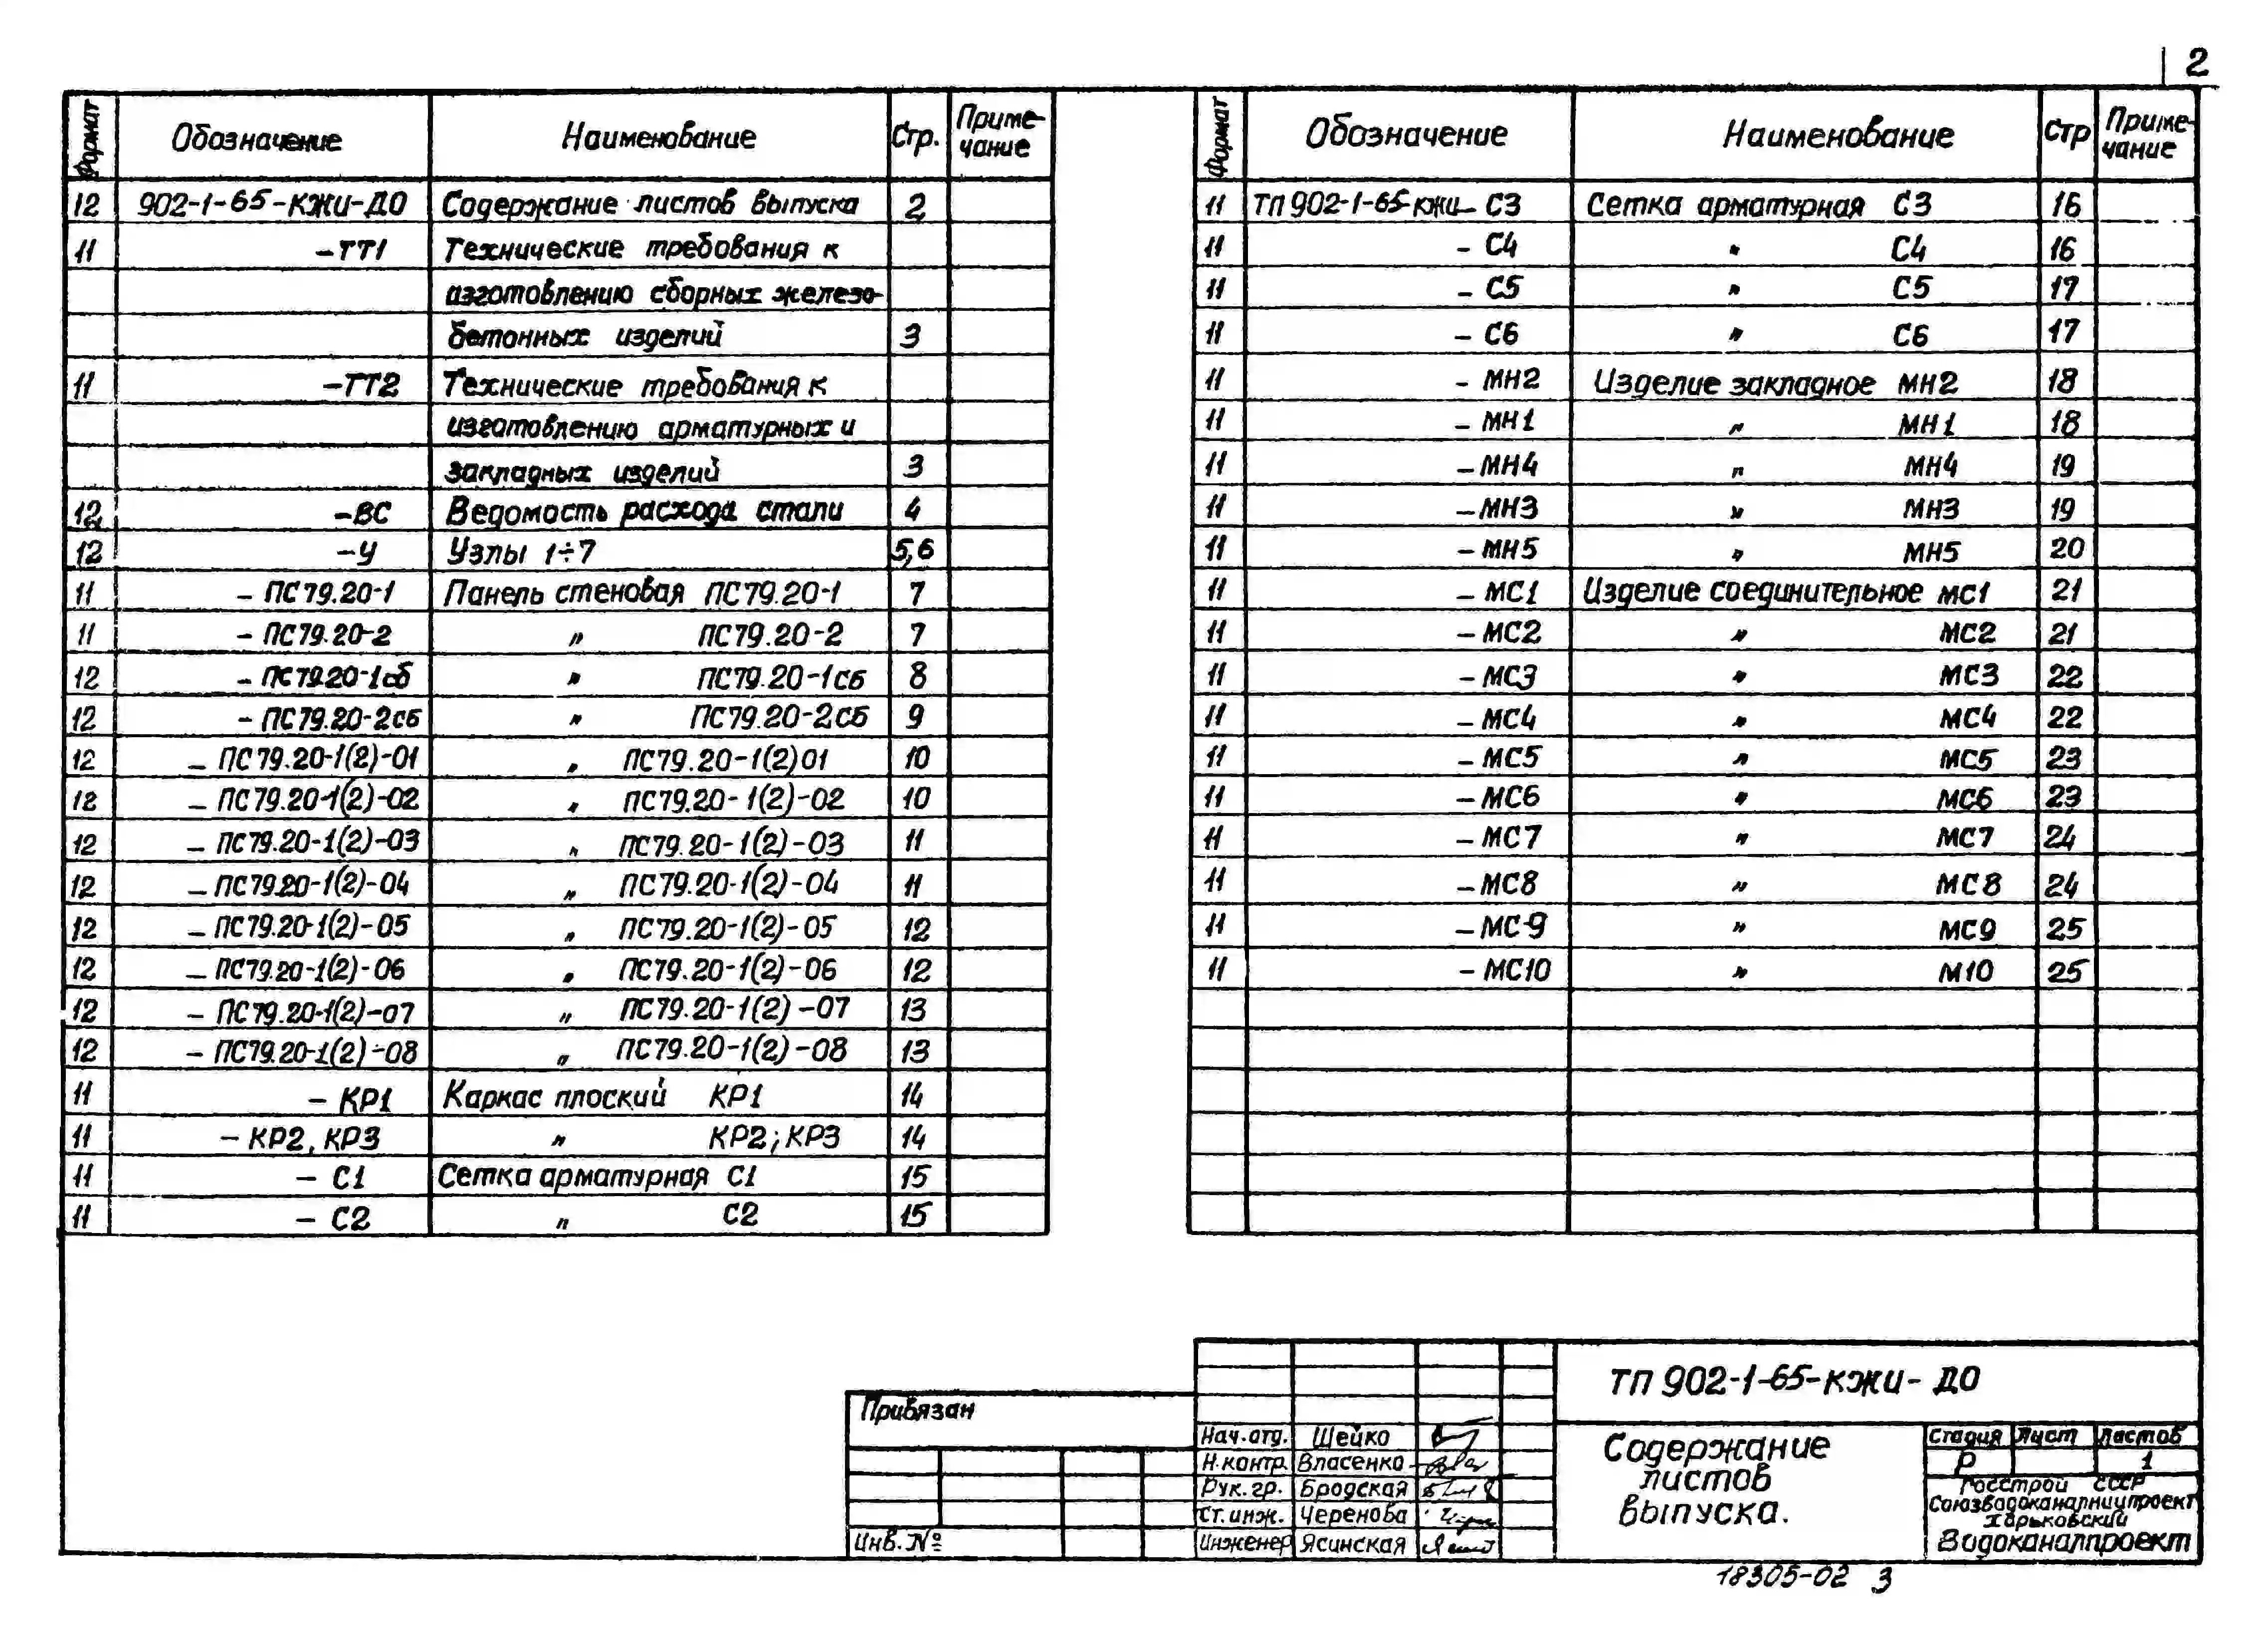 2
Формат Обозначение Наименование Стр. Приме-чание
12 902-1-65-КЖИ-ДО Содержание листов выпуска 2
11 -ТТ1 Технические требования к
изготовлению сборных железо-
бетонных изделий 3
11 -ТТ2 Технические требования к
изготовлению арматурных и
закладных изделий 3
12 -ВС Ведомость расхода стали 4
12 -У Узлы 1÷7 5,6
11 - ПС79.20-1 Панель стеновая ПС79.20-1 7
11 - ПС79.20-2 " ПС79.20-2 7
12 - ПС79.20-1сб " ПС79.20-1сб 8
12 - ПС79.20-2сб " ПС79.20-2сб 9
12 - ПС79.20-1(2)-01 " ПС79.20-1(2)01 10
12 - ПС79.20-1(2)-02 " ПС79.20-1(2)-02 10
12 - ПС79.20-1(2)-03 " ПС79.20-1(2)-03 11
12 - ПС79.20-1(2)-04 " ПС79.20-1(2)-04 11
12 - ПС79.20-1(2)-05 " ПС79.20-1(2)-05 12
12 - ПС79.20-1(2)-06 " ПС79.20-1(2)-06 12
12 - ПС79.20-1(2)-07 " ПС79.20-1(2)-07 13
12 - ПС79.20-1(2)-08 " ПС79.20-1(2)-08 13
11 - КР1 Каркас плоский КР1 14
11 - КР2, КР3 " КР2; КР3 14
11 - С1 Сетка арматурная С1 15
11 - С2 " С2 15
Формат Обозначение Наименование Стр Приме-чание
11 ТП 902-1-65-КЖИ- С3 Сетка арматурная С3 16
11 - С4 " С4 16
11 - С5 " С5 17
11 - С6 " С6 17
11 - МН2 Изделие закладное МН2 18
11 - МН1 " МН1 18
11 - МН4 " МН4 19
11 - МН3 " МН3 19
11 - МН5 " МН5 20
11 - МС1 Изделие соединительное МС1 21
11 - МС2 " МС2 21
11 - МС3 " МС3 22
11 - МС4 " МС4 22
11 - МС5 " МС5 23
11 - МС6 " МС6 23
11 - МС7 " МС7 24
11 - МС8 " МС8 24
11 - МС-9 " МС9 25
11 - МС10 " М10 25
Привязан
Инв. №
Нач.отд. Шейко
Н.контр. Власенко
Рук. гр. Бродская
Ст. инж. Черенова
Инженер Ясинская
ТП 902-1-65-КЖИ- ДО
Содержание
листов
выпуска.
Стадия Лист Листов
Р 1
Госстрой СССР
Союзводоканалниипроект
Харьковский
Водоканалпроект
18305-02 3